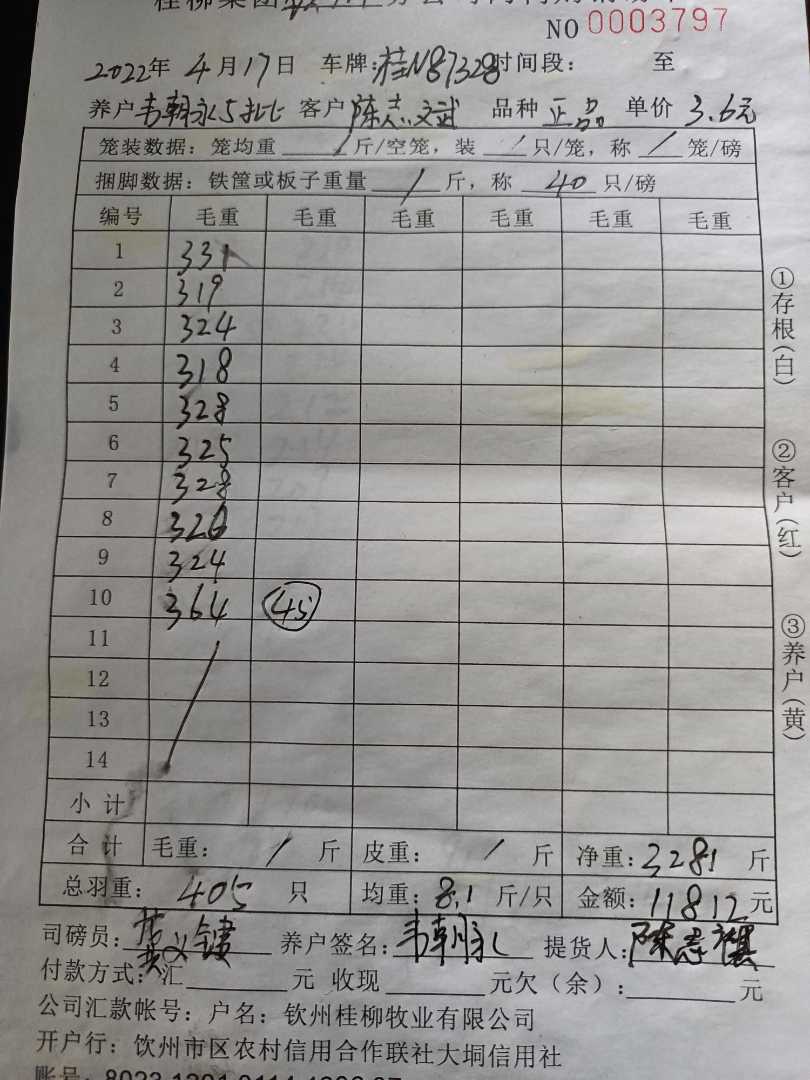 NO 0003797
2022年 4月17日 车牌:桂N87328 时间段: 至
养户 韦朝永5批 客户 陈志斌 品种 正品 单价 3.6元
笼装数据: 笼均重 / 斤/空笼, 装 / 只/笼, 称 / 笼/磅
捆脚数据: 铁筐或板子重量 / 斤, 称 40 只/磅
编号 毛重 毛重 毛重 毛重 毛重 毛重
1 331
2 319
3 324
4 318
5 328
6 325
7 328
8 326
9 324
10 364 45
11
12
13
14
小计
合计 毛重: / 斤 皮重: / 斤 净重: 3281 斤
总羽重: 405 只 均重: 8.1 斤/只 金额: 11812 元
司磅员: 养户签名: 韦朝永 提货人: 陈志
付款方式: 汇 元 收现 元欠(余): 元
公司汇款帐号: 户名: 钦州桂柳牧业有限公司
开户行: 钦州市区农村信用合作联社大垌信用社
①存根(白)
②客户(红)
③养户(黄)